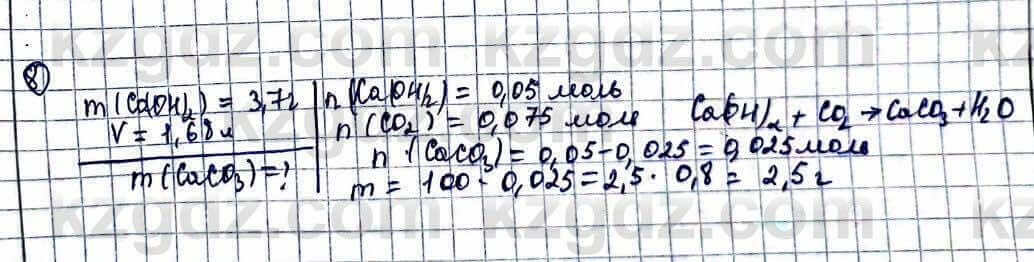 8)
m(Ca(OH)₂) = 3,7г
V = 1,68л
m(CaCO₃) = ?
n(Ca(OH)₂) = 0,05 моль
n(CO₂) = 0,075 моль
Ca(OH)₂ + CO₂ → CaCO₃ + H₂O
n(CaCO₃) = 0,05 - 0,025 = 0,025 моль
m = 100 · 0,025 = 2,5 · 0,8 = 2,5г
kzgdz.com
kzgdz.com